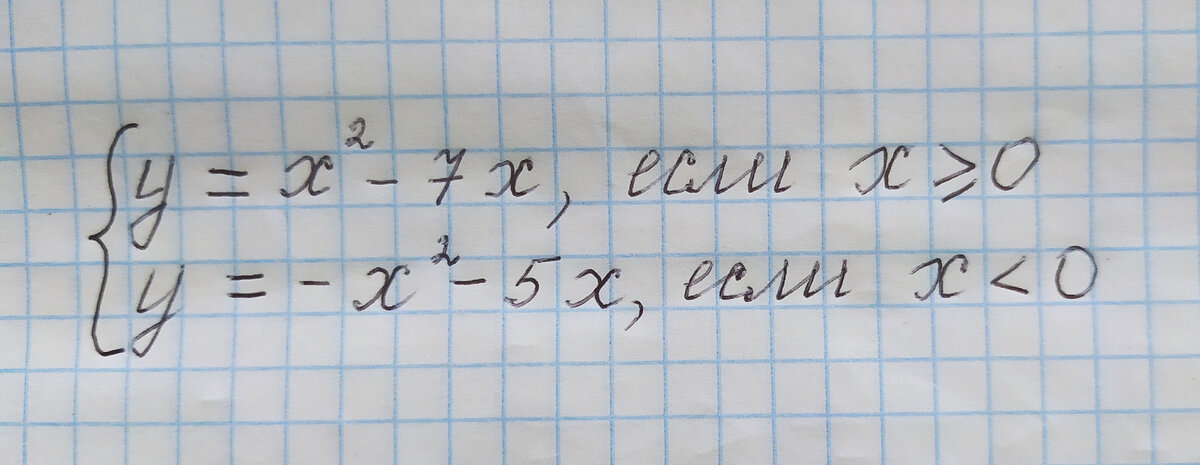 y = x² - 7x, если x ⩾ 0
y = -x² - 5x, если x < 0